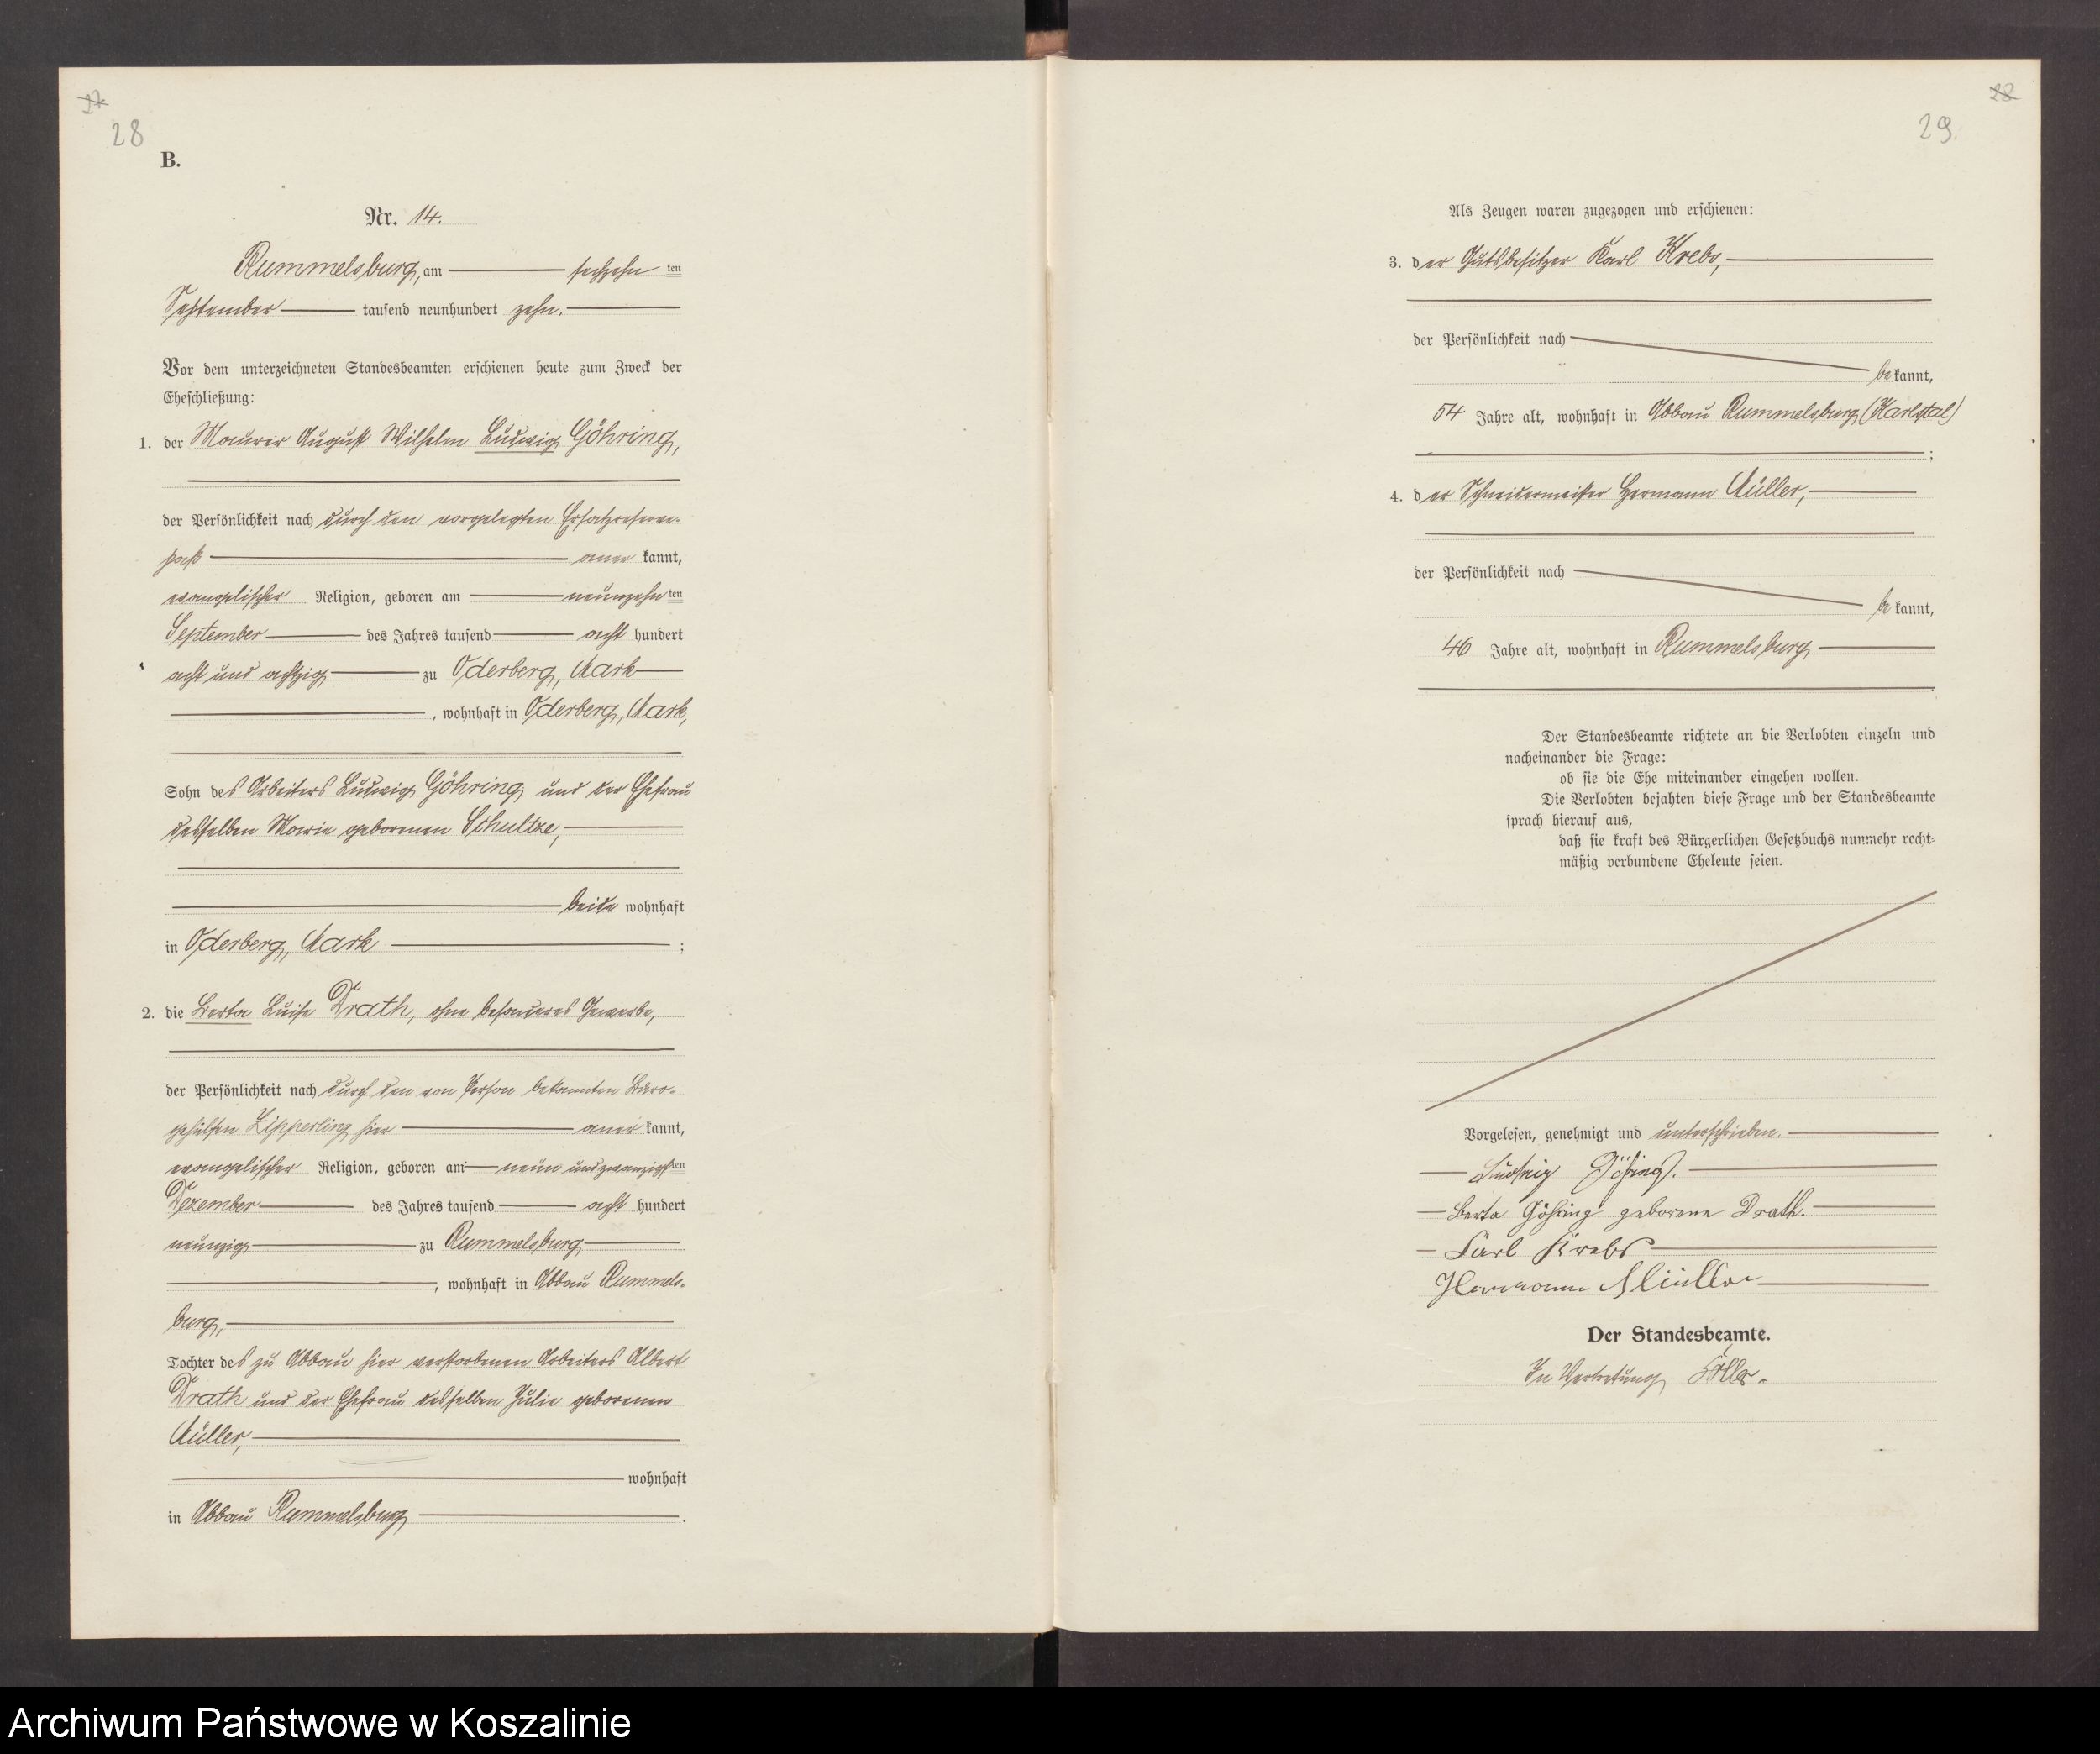 27
28
B.
Nr. 14.
Rummelsburg, am sechzehn ten
September tausend neunhundert zehn.
Vor dem unterzeichneten Standesbeamten erschienen heute zum Zweck der
Eheschließung:
1. der Maurer August Wilhelm Ludwig Göhring,
der Persönlichkeit nach durch den vorgelegten Ersatzreserve-
paß aner kannt,
evangelischer Religion, geboren am neunzehn ten
September des Jahres tausend acht hundert
acht und achtzig zu Oderberg, Mark
, wohnhaft in Oderberg, Mark,
Sohn des Arbeiters Ludwig Göhring und der Ehefrau
desselben Marie geborenen Schultze,
beide wohnhaft
in Oderberg, Mark ;
2. die Berta Luise Drath, ohne besonderes Gewerbe,
der Persönlichkeit nach durch den von Person bekannten Büro-
gehülfen Zipperling hier aner kannt,
evangelischer Religion, geboren am neun und zwanzigsten
Dezember des Jahres tausend acht hundert
neunzig zu Rummelsburg
, wohnhaft in Abbau Rummels-
burg,
Tochter des zu Abbau hier verstorbenen Arbeiters Albert
Drath und der Ehefrau desselben Julie geborenen
Müller,
wohnhaft
in Abbau Rummelsburg .
28
29.
Als Zeugen waren zugezogen und erschienen:
3. der Gutsbesitzer Karl Krebs,
der Persönlichkeit nach
be kannt,
54 Jahre alt, wohnhaft in Abbau Rummelsburg (Karlstal)
;
4. der Schneidermeister Hermann Müller,
der Persönlichkeit nach
be kannt,
46 Jahre alt, wohnhaft in Rummelsburg
.
Der Standesbeamte richtete an die Verlobten einzeln und
nacheinander die Frage:
ob sie die Ehe miteinander eingehen wollen.
Die Verlobten bejahten diese Frage und der Standesbeamte
sprach hierauf aus,
daß sie kraft des Bürgerlichen Gesetzbuchs nunmehr recht-
mäßig verbundene Eheleute seien.
Vorgelesen, genehmigt und unterschrieben.
Ludwig Göhring.
Berta Göhring geborene Drath.
Carl Krebs
Hermann Müller
Der Standesbeamte.
In Vertretung
Archiwum Państwowe w Koszalinie